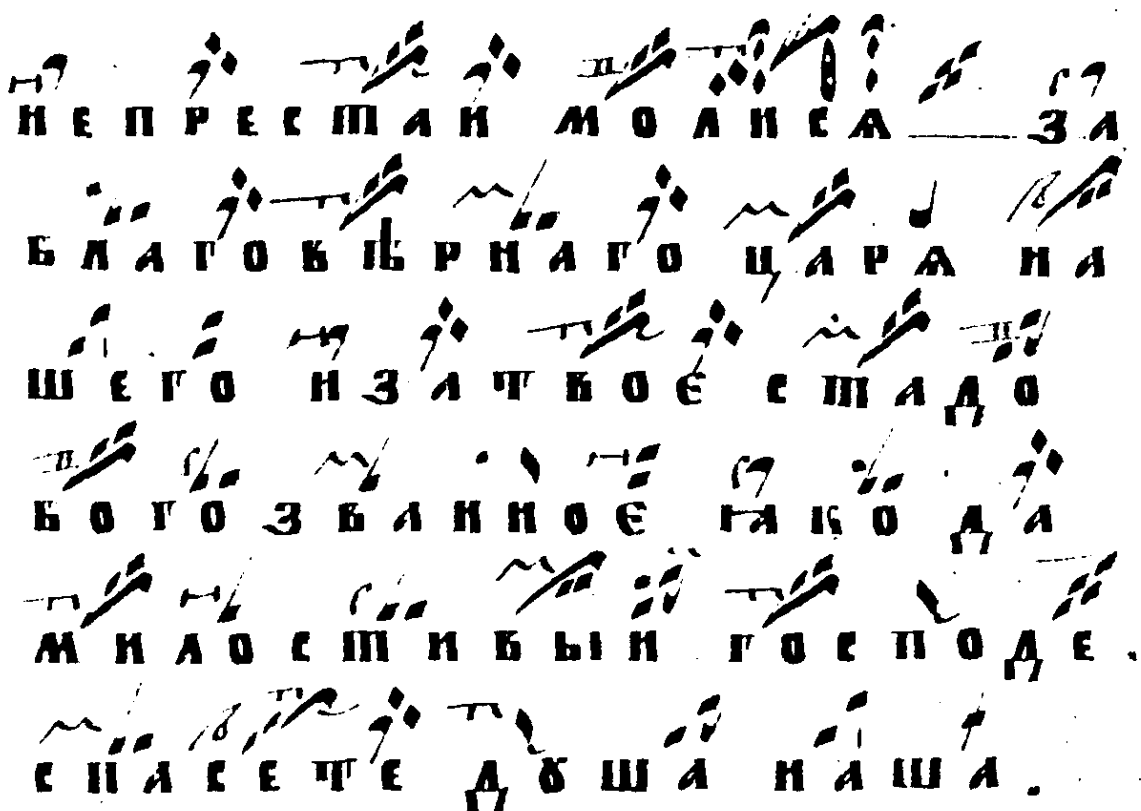 непрестай молисѧ за
благовѣрнаго царѧ на
шего и за твое стадо
богозванное ꙗко да
милостивый господе .
спасете дꙋша наша .